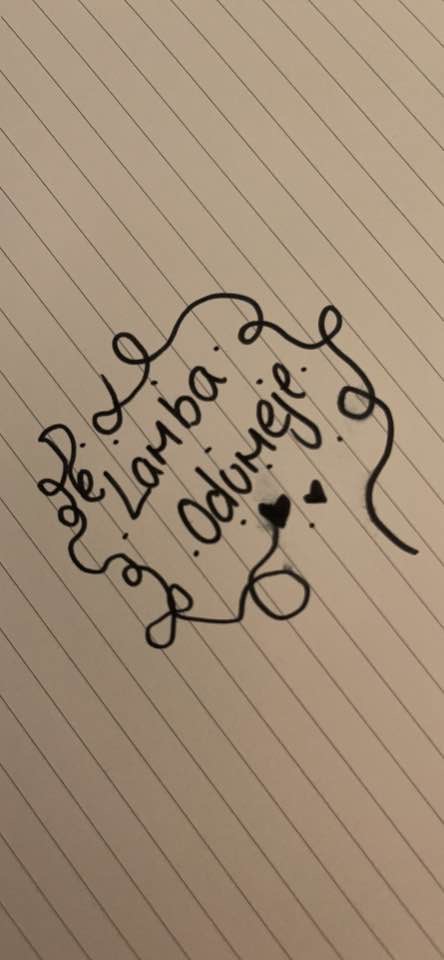 De
Lamba
Odumeje.